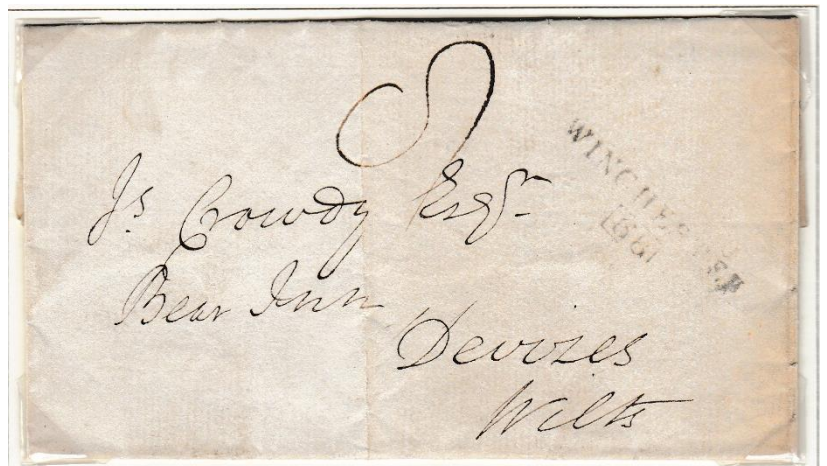 WINCHESTER
Js. Crowdy Esqr.
Bear Inn
Devizes
Wilts